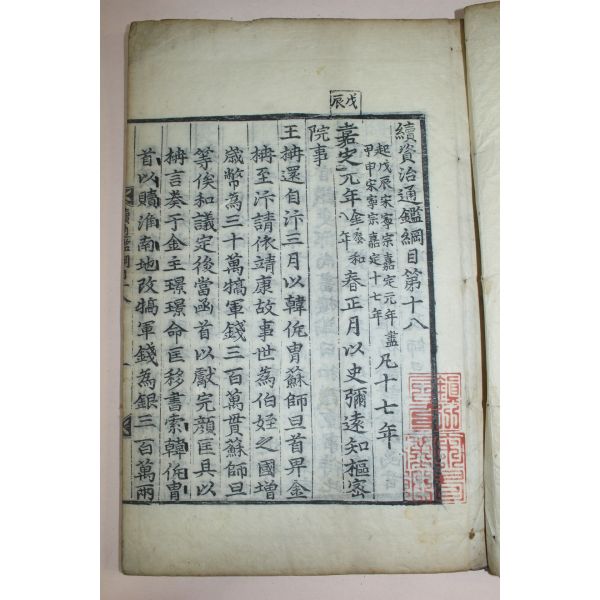 戊辰
續資治通鑑綱目第十八
起戊辰宋寧宗嘉定元年盡
甲申宋寧宗嘉定十七年
凡十七年
嘉定元年金泰和八年春正月以史彌遠知樞密
院事
王柟還自汴三月以韓侂胄蘇師旦首畀金
柟至汴請依靖康故事世為伯姪之國增
歲幣為三十萬犒軍錢三百萬貫蘇師旦
等俟和議定後當函首以獻完顔匡具以
柟言奏于金主璟璟命匡移書索韓侂胄
首以贖淮南地改犒軍錢為銀三百萬兩